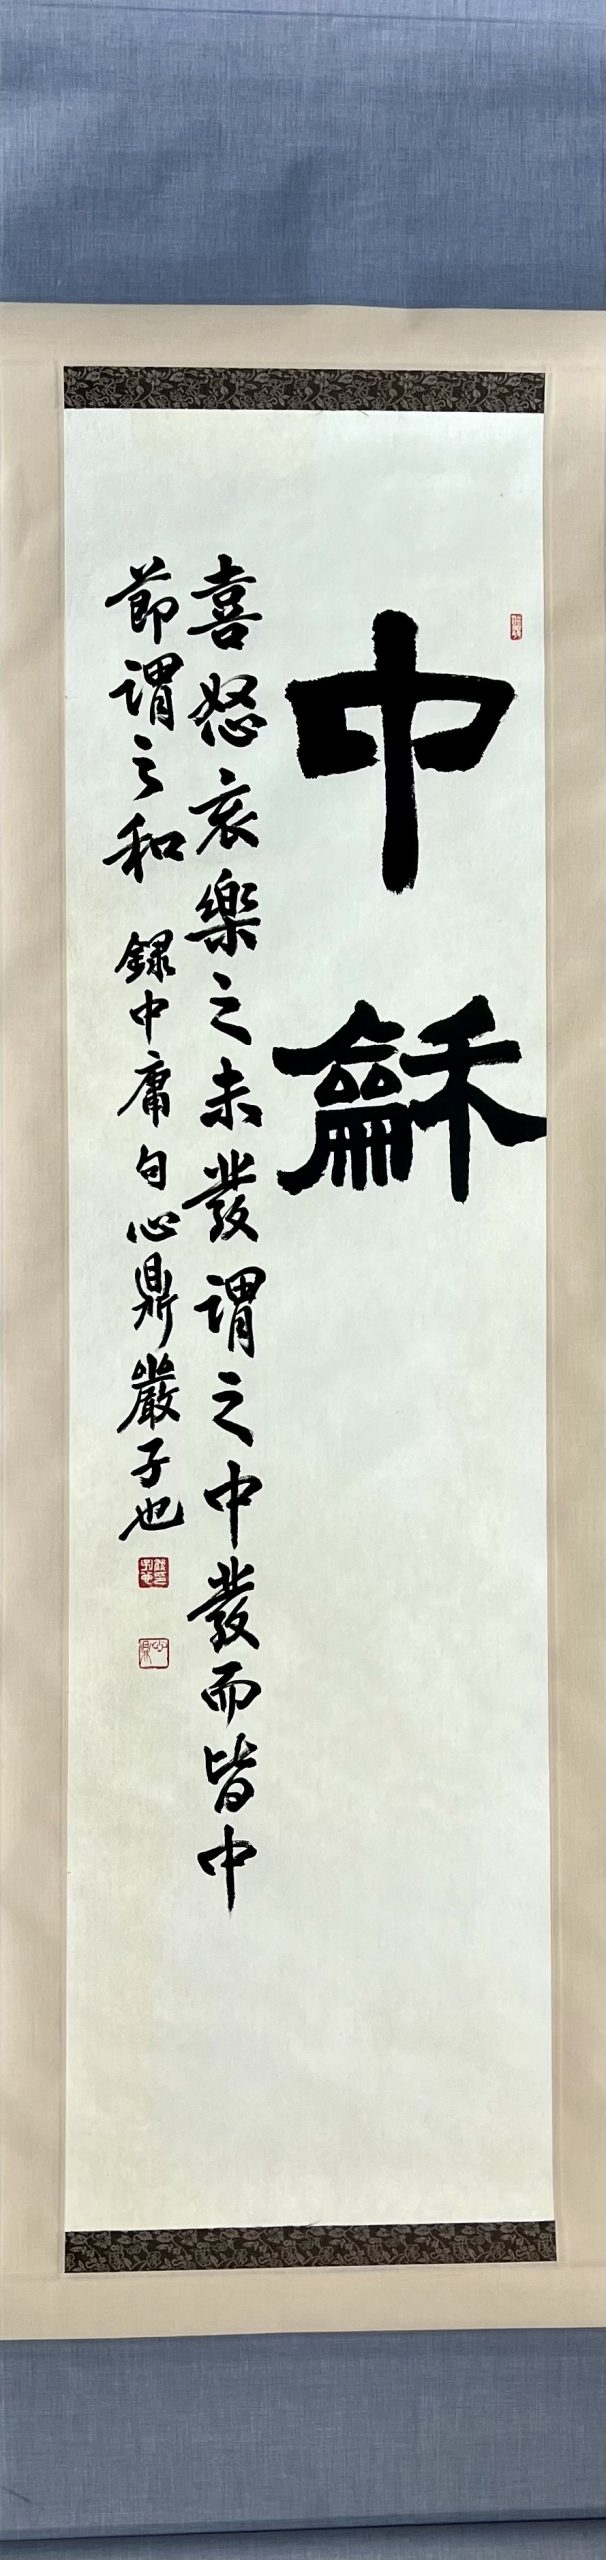 中龢
喜怒哀樂之未發謂之中發而皆中
節謂之和 錄中庸句心鼎嚴子也